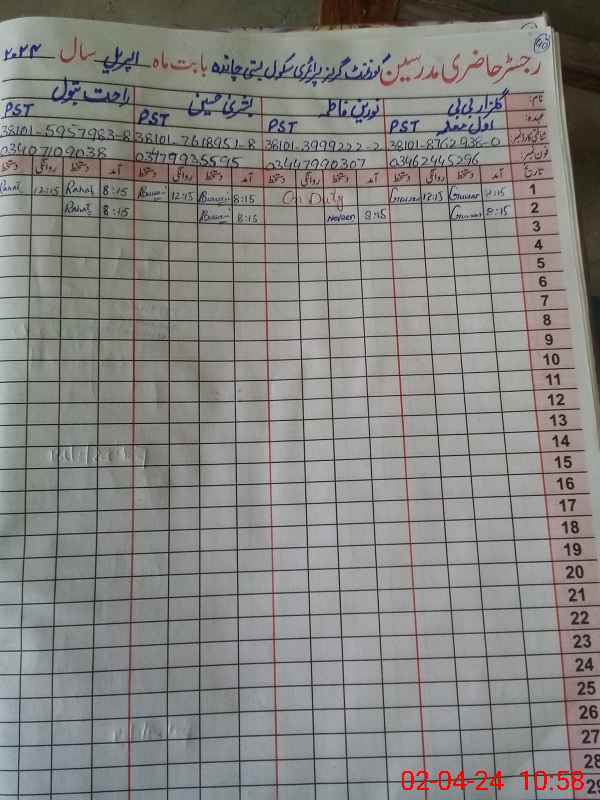 90
رجسٹر حاضری مدرسین گورنمنٹ گرلز پرائمری سکول بستی چانڈہ بابت ماہ اپریل سال ۲۰۲۴
نام: گلزار بی بی نورین فاطمہ بشریٰ حسین راحت بتول
عہدہ: اول معلمہ PST PST PST PST
شناختی کارڈ نمبر 38101-8762938-0 38101-3999222-2 38101-7618951-8 38101-5957983-8
فون نمبر: 03462445296 03447990307 03479935595 03407109038
تاریخ آمد دستخط روانگی دستخط آمد دستخط روانگی دستخط آمد دستخط روانگی دستخط آمد دستخط روانگی دستخط
Rahat 12:15 Rahat 8:15 12:15 8:15 On Duty 12:15 8:15 1
Rahat 8:15 8:15 Noreen 8:15 8:15 2
3
4
5
6
7
8
9
10
11
12
13
14
15
16
17
18
19
20
21
22
23
24
25
26
27
28
29
02-04-24 10:58